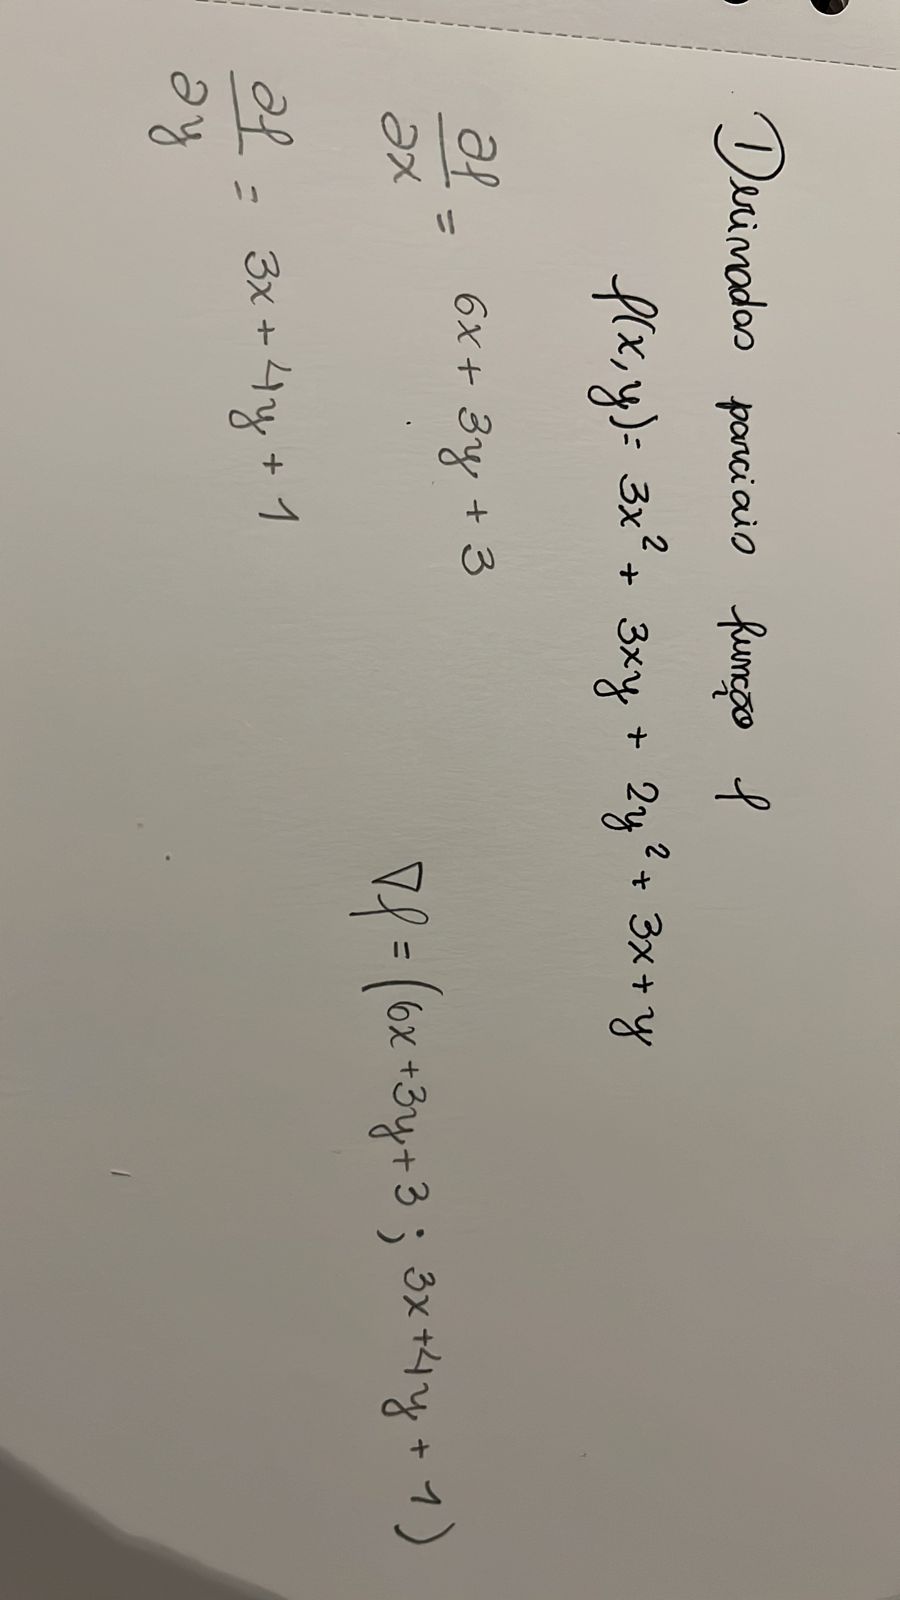 Derivadas parciais função f
f(x,y)= 3x² + 3xy + 2y² + 3x + y
∂f/∂x = 6x + 3y + 3
∇f = (6x+3y+3 ; 3x+4y + 1)
∂f/∂y = 3x + 4y + 1